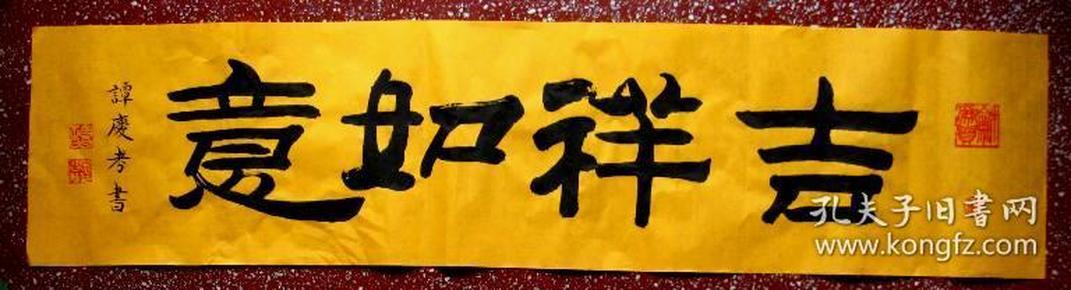 吉祥如意
譚慶孝書
孔夫子旧書网
www.kongfz.com